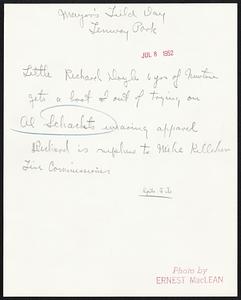 Mayor's Field Day
Fenway Park
JUL 8 1952
Little Richard Doyle 6 yrs of Newton
gets a boot out of trying on
Al Schachts wearing apparel
Richard is nephew to Mike Kelleher
Fire Commissioner
Photo by
ERNEST MacLEAN